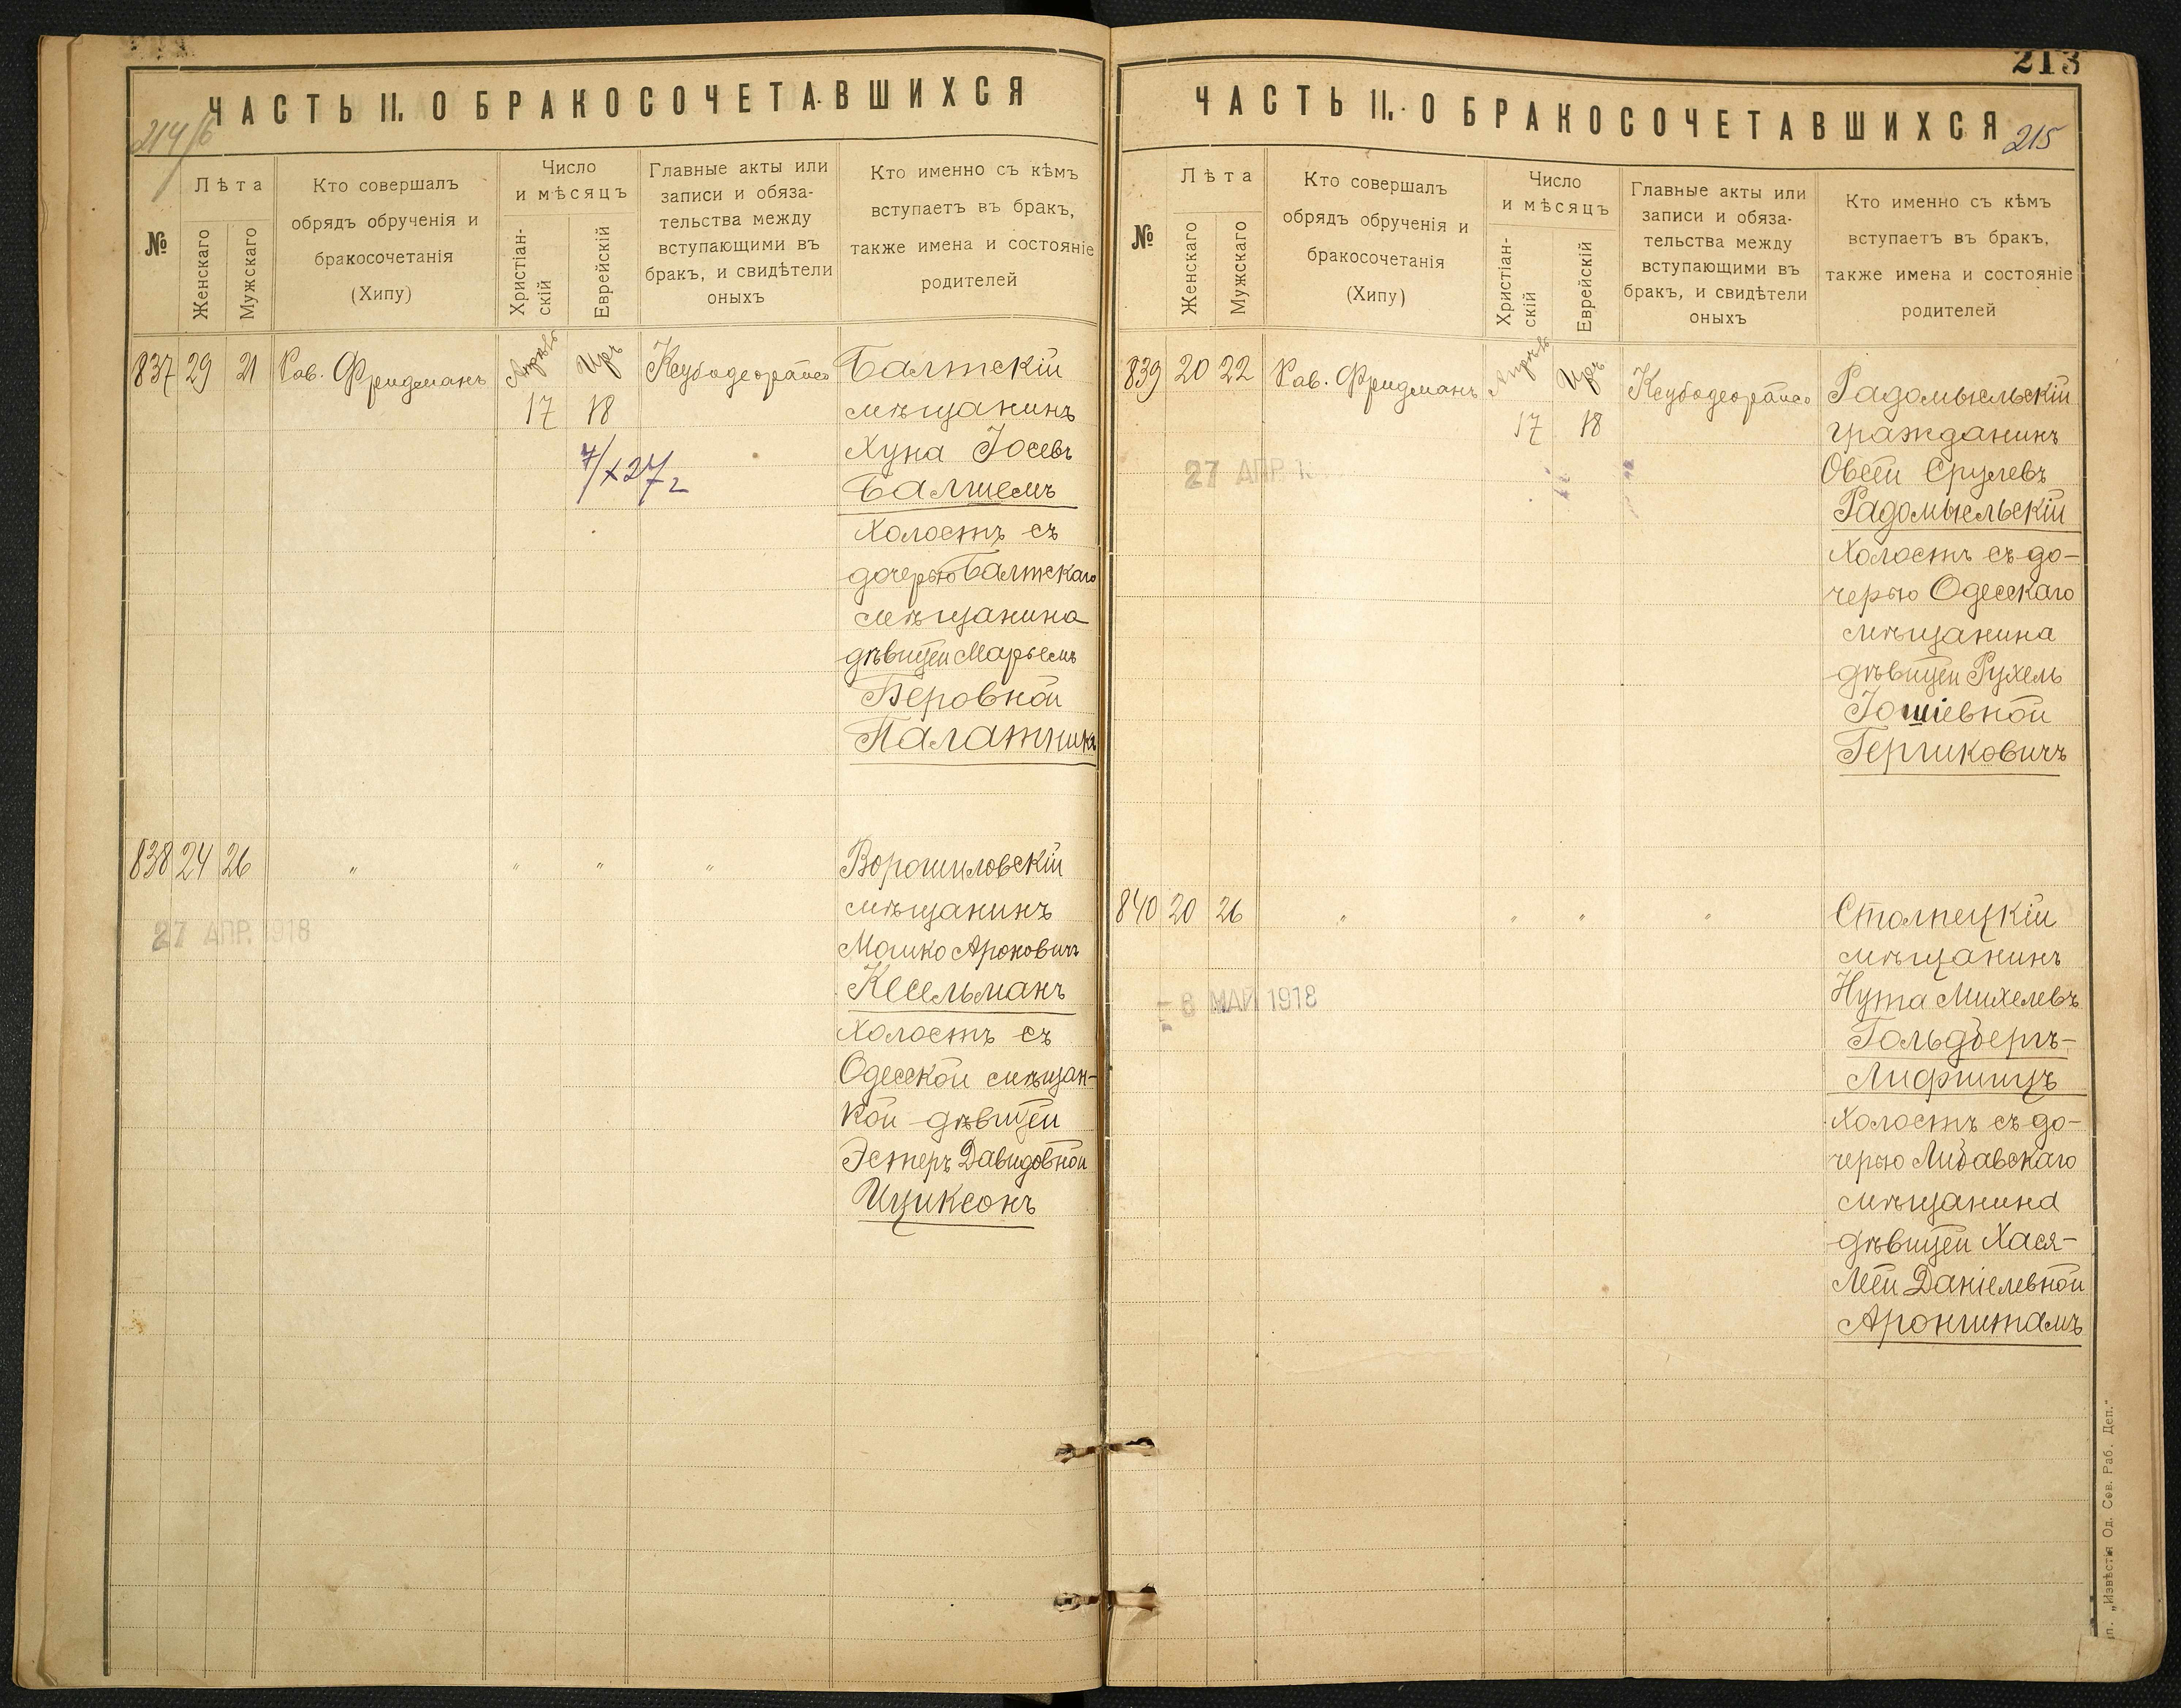 ЧАСТЬ II. О БРАКОСОЧЕТАВШИХСЯ
214/б
№
Лѣта
Женскаго
Мужскаго
Кто совершалъ
обрядъ обрученія и
бракосочетанія
(Хипу)
Число
и мѣсяцъ
Христіан-
скій
Еврейскій
Главные акты или
записи и обяза-
тельства между
вступающими въ
бракъ, и свидѣтели
оныхъ
Кто именно съ кѣмъ
вступаетъ въ бракъ,
также имена и состояніе
родителей
837 29 21 Рав. Фридманъ Апрѣль Иръ Ксубодеорайсо Балтскій
17 18 мѣщанинъ
Хуна Іосевъ
7/X 27 г Балшемъ
Холостъ съ
дочерью Балтскаго
мѣщанина
дѣвицей Марьемъ
Беровной
Палатникъ
838 24 26 " " " " Ворошиловскій
мѣщанинъ
27 АПР. 1918
Мошко Ароновичъ
Кесельманъ
Холостъ съ
Одесской мѣщан-
кой дѣвицей
Эстеръ Давидовной
Ицыксонъ
213
ЧАСТЬ II. О БРАКОСОЧЕТАВШИХСЯ
215
№
Лѣта
Женскаго
Мужскаго
Кто совершалъ
обрядъ обрученія и
бракосочетанія
(Хипу)
Число
и мѣсяцъ
Христіан-
скій
Еврейскій
Главные акты или
записи и обяза-
тельства между
вступающими въ
бракъ, и свидѣтели
оныхъ
Кто именно съ кѣмъ
вступаетъ въ бракъ,
также имена и состояніе
родителей
839 20 22 Рав. Фридманъ Апрѣль Иръ Ксубодеорайсо Радомысльскій
17 18 гражданинъ
27 АПР.
Овсей Срулевъ
Радомысльскій
Холостъ съ до-
черью Одесскаго
мѣщанина
дѣвицей Рухель
Іошіевной
Гершковичъ
840 20 26 " " " " Столпецкій
мѣщанинъ
- 6 МАЙ 1918
Нута Михелевъ
Гольдбергъ-
Лифшицъ
Холостъ съ до-
черью Либавскаго
мѣщанина
дѣвицей Хася-
Леей Даніелевной
Аронштамъ
„Извѣстія Од. Сов. Раб. Деп."